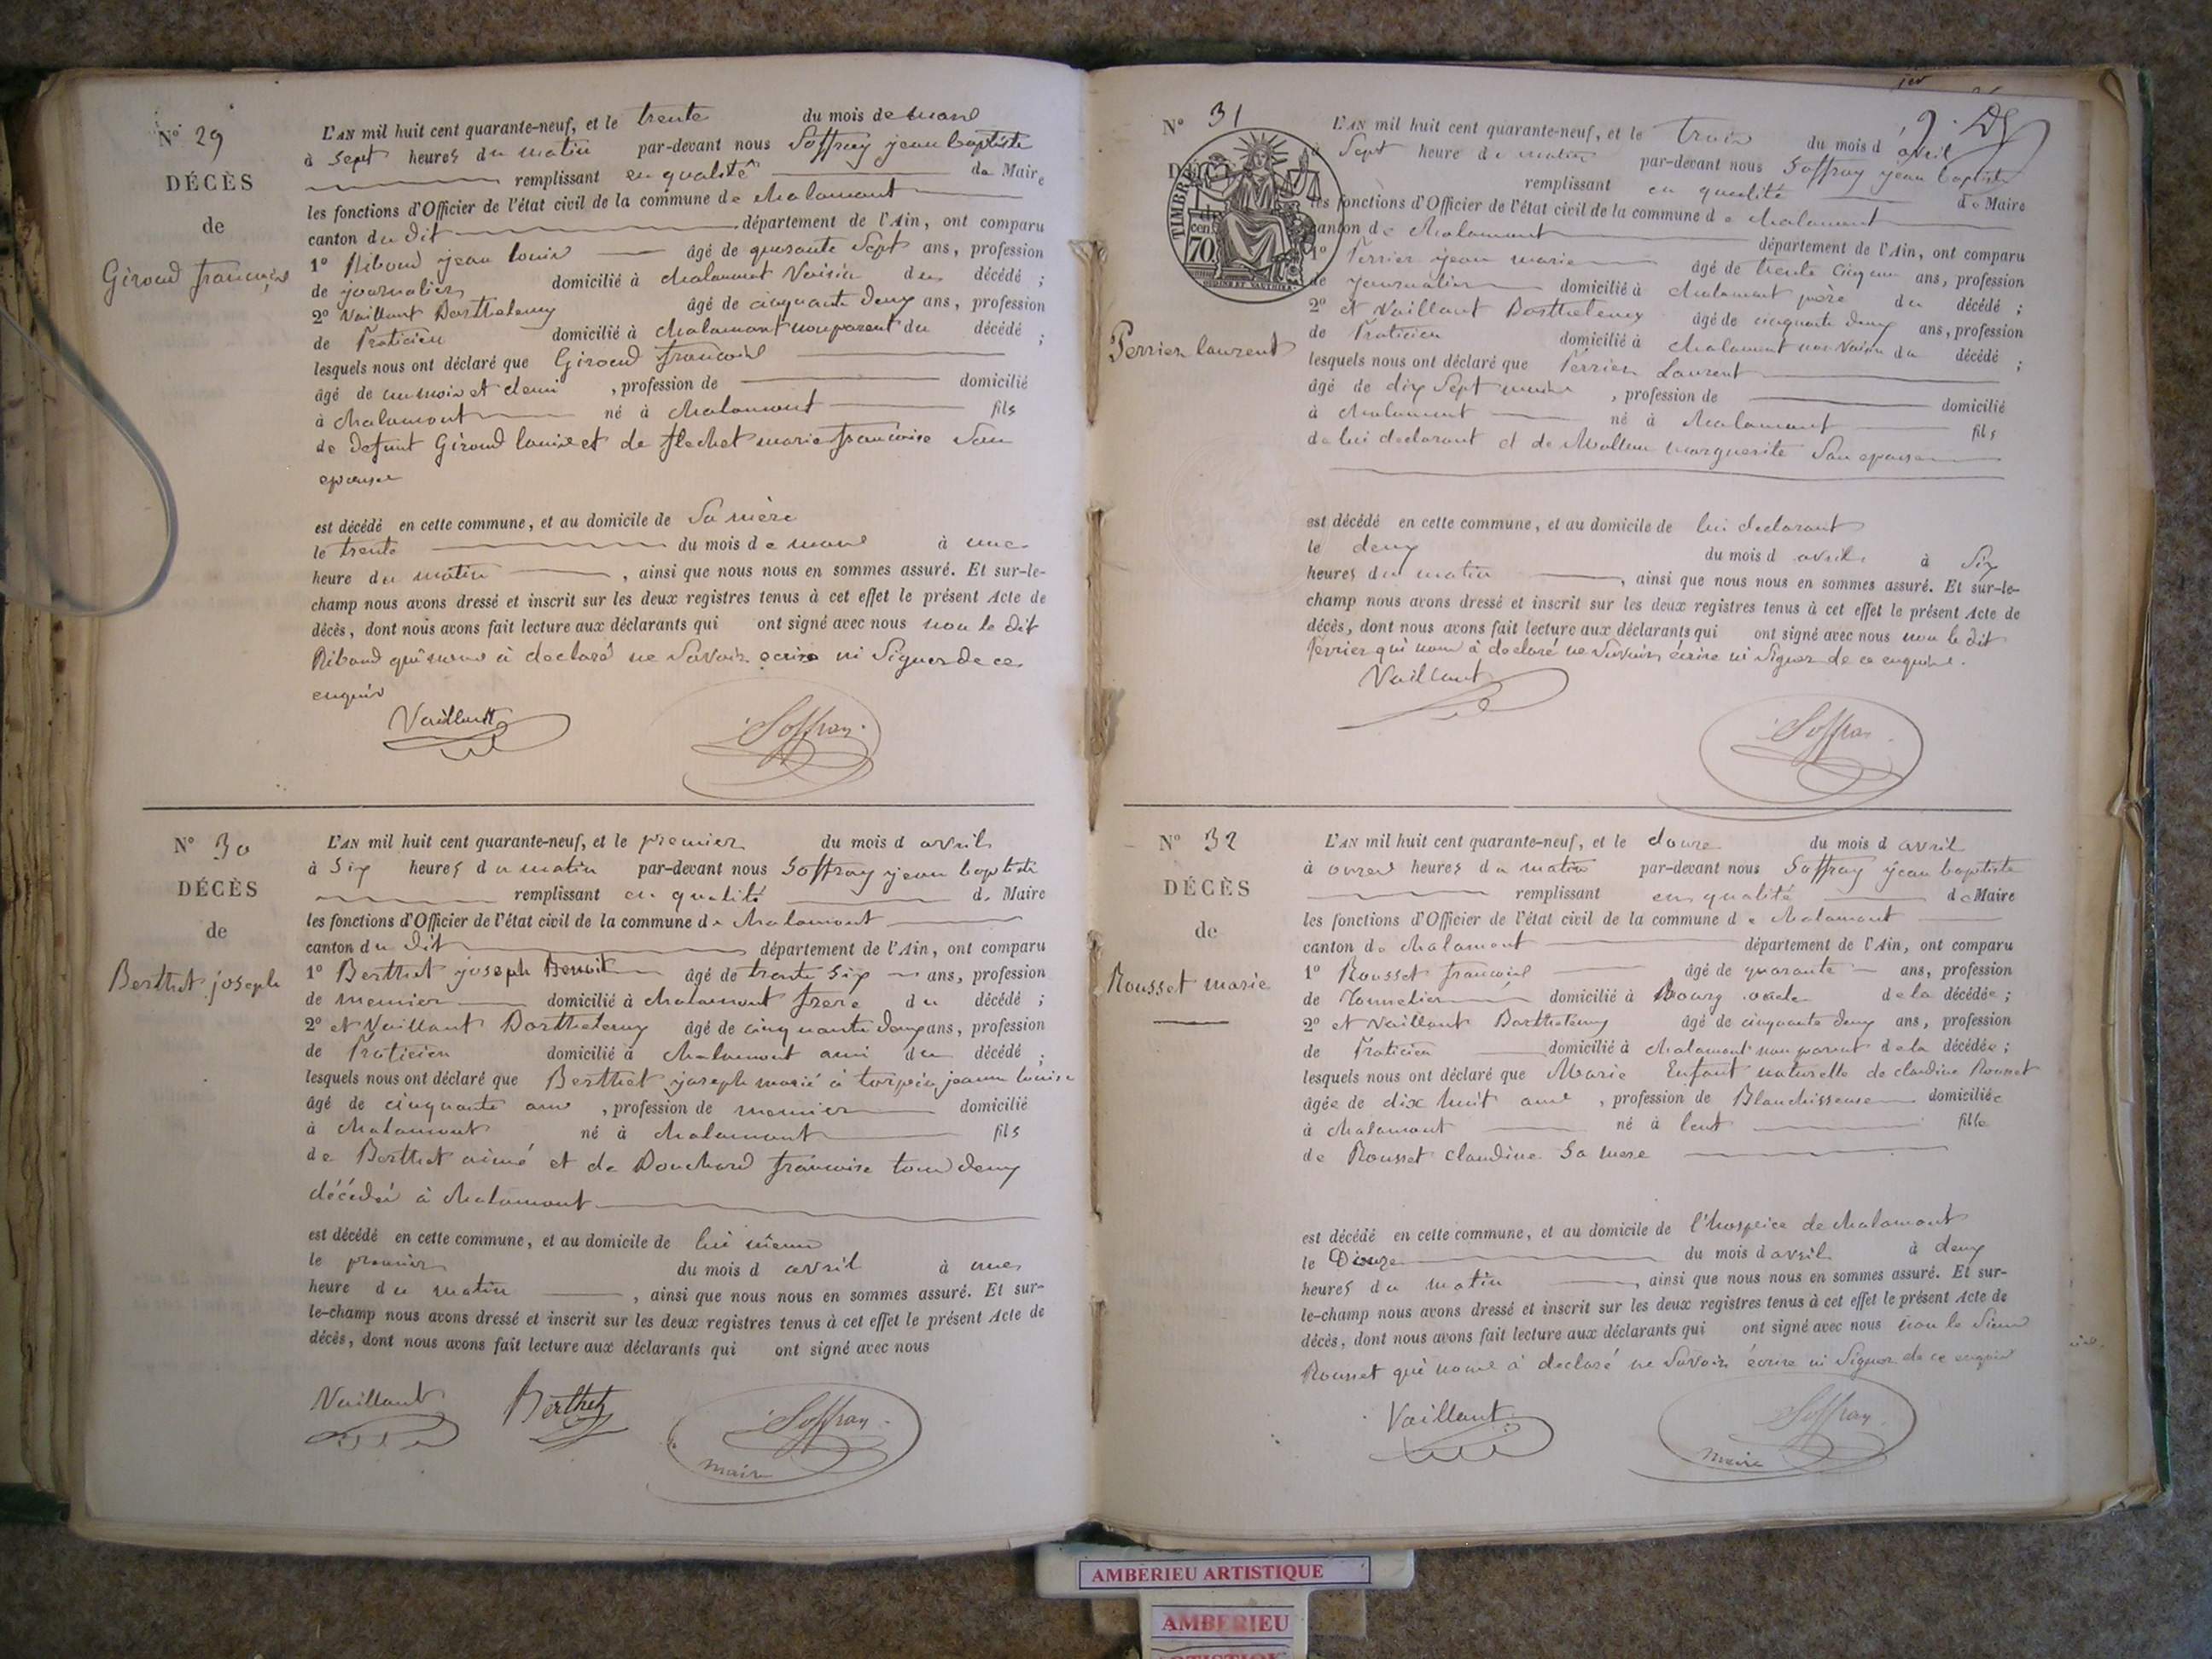 N° 29
DÉCÈS
de
Giroud françois
L'AN mil huit cent quarante-neuf, et le trente du mois de mars
à sept heures du matin par-devant nous Soffray jean baptiste
remplissant en qualité de Maire
les fonctions d'Officier de l'état civil de la commune de chalamont
canton du dit département de l'Ain, ont comparu
1° Riboud jean louis âgé de quarante sept ans, profession
de journalier domicilié à chalamont Voisin du décédé ;
2° Vaillant Barthelemy âgé de cinquante deux ans, profession
de Praticien domicilié à chalamont non parent du décédé ;
lesquels nous ont déclaré que Giroud françois
âgé de un mois et demi , profession de domicilié
à chalamont né à chalamont fils
de defunt Giroud louis et de flechet marie françoise Son
epouse
est décédé en cette commune, et au domicile de Sa mère
le trente du mois de mars à une
heure du matin , ainsi que nous nous en sommes assuré. Et sur-le-
champ nous avons dressé et inscrit sur les deux registres tenus à cet effet le présent Acte de
décès, dont nous avons fait lecture aux déclarants qui ont signé avec nous non le dit
Riboud qui nous à declaré ne Savoir ecrire ni Signer de ce
enquis
Vaillant Soffray
N° 30
DÉCÈS
de
Berthet joseph
L'AN mil huit cent quarante-neuf, et le premier du mois d avril
à Six heures du matin par-devant nous Soffray jean baptiste
remplissant en qualité de Maire
les fonctions d'Officier de l'état civil de la commune de chalamont
canton du dit département de l'Ain, ont comparu
1° Berthet joseph Benoit âgé de trente six ans, profession
de meunier domicilié à chalamont frere du décédé ;
2° et Vaillant Barthelemy âgé de cinquante deux ans, profession
de Praticien domicilié à chalamont ami du décédé ;
lesquels nous ont déclaré que Berthet joseph marié à torpin jeanne louise
âgé de cinquante ans , profession de meunier domicilié
à chalamont né à chalamont fils
de Berthet aimé et de Bouchard françoise tous deux
décédés à chalamont
est décédé en cette commune, et au domicile de lui même
le premier du mois d avril à une
heure du matin , ainsi que nous nous en sommes assuré. Et sur-
le-champ nous avons dressé et inscrit sur les deux registres tenus à cet effet le présent Acte de
décès, dont nous avons fait lecture aux déclarants qui ont signé avec nous
Vaillant Berthet Soffray
maire
N° 31
TIMBRE
cen. 70
Perrier laurent
L'AN mil huit cent quarante-neuf, et le trois du mois d avril
à Sept heure du matin par-devant nous Soffray jean baptiste
remplissant en qualité de Maire
les fonctions d'Officier de l'état civil de la commune de chalamont
canton de chalamont département de l'Ain, ont comparu
1° Perrier jean marie âgé de trente cinq ans, profession
de journalier domicilié à chalamont père du décédé ;
2° et Vaillant Barthelemy âgé de cinquante deux ans, profession
de Praticien domicilié à chalamont non Voisin du décédé ;
lesquels nous ont déclaré que Perrier Laurent
âgé de dix Sept mois , profession de domicilié
à chalamont né à chalamont fils
de lui declarant et de marguerite Son epouse
est décédé en cette commune, et au domicile de lui declarant
le deux du mois d avril à Six
heures du matin , ainsi que nous nous en sommes assuré. Et sur-le-
champ nous avons dressé et inscrit sur les deux registres tenus à cet effet le présent Acte de
décès, dont nous avons fait lecture aux déclarants qui ont signé avec nous non le dit
Perrier qui nous à declaré ne Savoir écrire ni Signer de ce enquis.
Vaillant Soffray
N° 32
DÉCÈS
de
Rousset marie
L'AN mil huit cent quarante-neuf, et le douze du mois d avril
à onze heures du matin par-devant nous Soffray jean baptiste
remplissant en qualité de Maire
les fonctions d'Officier de l'état civil de la commune de chalamont
canton de chalamont département de l'Ain, ont comparu
1° Rousset françois âgé de quarante ans, profession
de Tonnelier domicilié à Bourg oncle de la décédée ;
2° et Vaillant Barthelemy âgé de cinquante deux ans, profession
de Praticien domicilié à chalamont non parent de la décédée ;
lesquels nous ont déclaré que Marie Enfant naturelle de claudine Rousset
âgée de dix huit ans , profession de Blanchisseuse domiciliée
à chalamont né à lent fille
de Rousset claudine Sa mere
est décédé en cette commune, et au domicile de l'hospice de chalamont
le Douze du mois d avril à deux
heures du matin , ainsi que nous nous en sommes assuré. Et sur-
le-champ nous avons dressé et inscrit sur les deux registres tenus à cet effet le présent Acte de
décès, dont nous avons fait lecture aux déclarants qui ont signé avec nous non le Sieur
Rousset qui nous à declaré ne Savoir écrire ni Signer de ce enquis
Vaillant Soffray
maire
AMBERIEU ARTISTIQUE
AMBERIEU
ARTISTIQUE